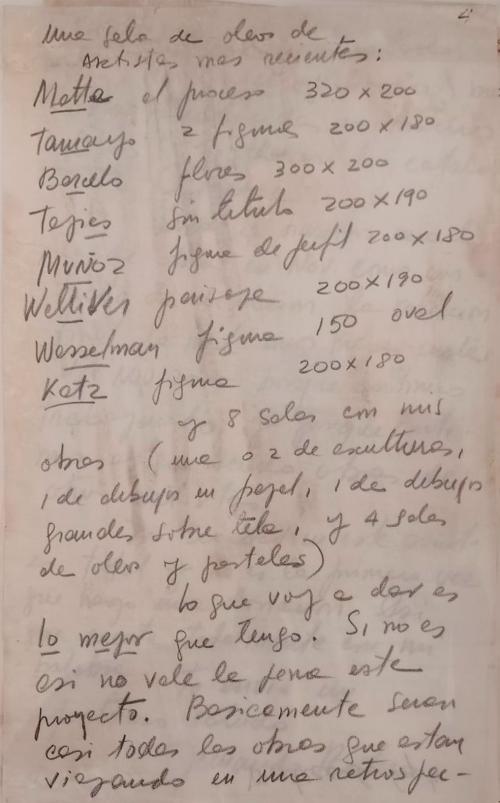 4
una sala de oleos de
Artistas mas recientes:
Matta el proceso 320 x 200
Tamayo 2 figuras 200 x 180
Barcelo flores 300 x 200
Tapies sin titulo 200 x 190
MUÑOZ figura de perfil 200 x 180
Welliver paisaje 200 x 190
Wesselman figura 150 oval
Katz figura 200 x 180
y 8 salas con mis
obras (una o 2 de esculturas,
1 de dibujos en papel, 1 de dibujos
grandes sobre tela, y 4 salas
de oleos y pasteles)
lo que voy a dar es
lo mejor que tengo. Si no es
asi no vale la pena este
proyecto. Basicamente seran
casi todas las obras que estan
viajando en una retrospec-